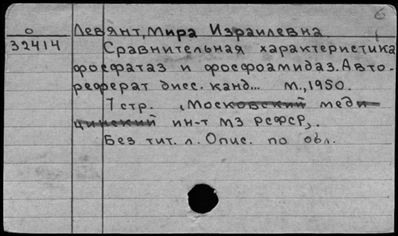 6
О Левянт, Мира Израилевна
32414 Сравнительная характеристика
фосфатаз и фосфоамидаз. Авто-
реферат дисс. канд... М., 1950.
7 стр. (Московский меди-
цинский ин-т МЗ РСФСР).
Без тит. л. Опис. по обл.